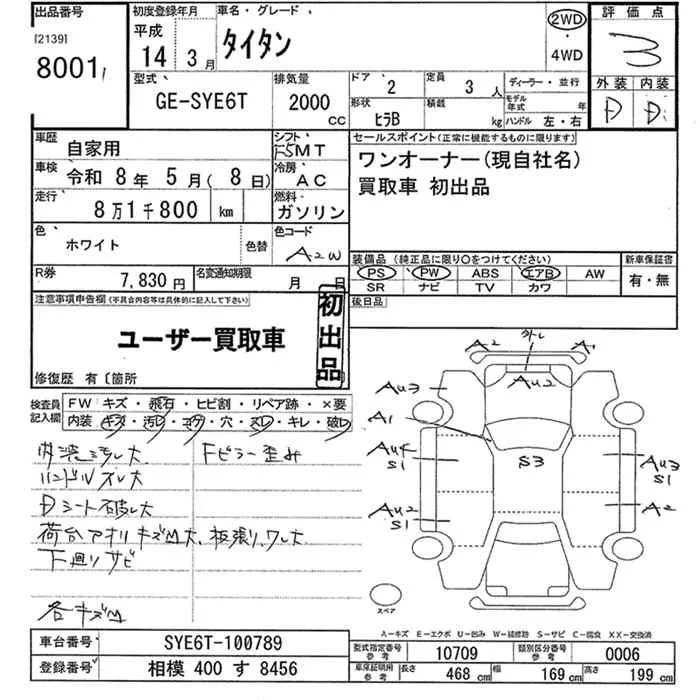 出品番号
[2139]
8001
初度登録年月
平成
14年3月
車名・グレード
タイタン
2WD
・
4WD
評価点
3
外装 内装
D D
型式
GE-SYE6T
排気量
2000
CC
ドア 2
定員 3 人
形状 ヒラB
積載 kg
ディーラー・並行
モデル年式 年
ハンドル 左・右
車歴 自家用
シフト F5MT
車検 令和 8年 5月(8日)
冷房 AC
走行 8万1千800 km
燃料 ガソリン
色 ホワイト 色替
色コード A2W
R券 7,830円
名変通知期限 月 日
セールスポイント(正常に機能するものに限ります)
ワンオーナー(現自社名)
買取車 初出品
装備品 (純正品に限り○をつけてください)
PS PW ABS エアB AW
SR ナビ TV カワ
新車保証書
有・無
後日品
注意事項申告欄(不具合内容等は具体的に記入して下さい)
ユーザー買取車
初出品
修復歴 有〔箇所
検査員記入欄
FW キズ・飛石・ヒビ割・リペア跡・×要
内装 キズ・汚レ・コゲ・穴・スレ・キレ・破レ
内装汚レ大
Fピラー歪み
ハンドルスレ大
Dシート破レ大
荷台アオリキズM大、板張り、ワレ大
下廻りサビ
各キズM
外し
A2 A1
AU3 AU2
A1
AU4
S1
S3
AU3
S1
AU2
S1
A2
スペア
A-キズ E-エクボ U-凹み W-補修跡 S-サビ C-腐食 XX-交換済
車台番号 SYE6T-100789
登録番号 相模 400 す 8456
型式指定番号 参考 10709
類別区分番号 参考 0006
車庫証明用 参考 長さ 468 cm 幅 169 cm 高さ 199 cm